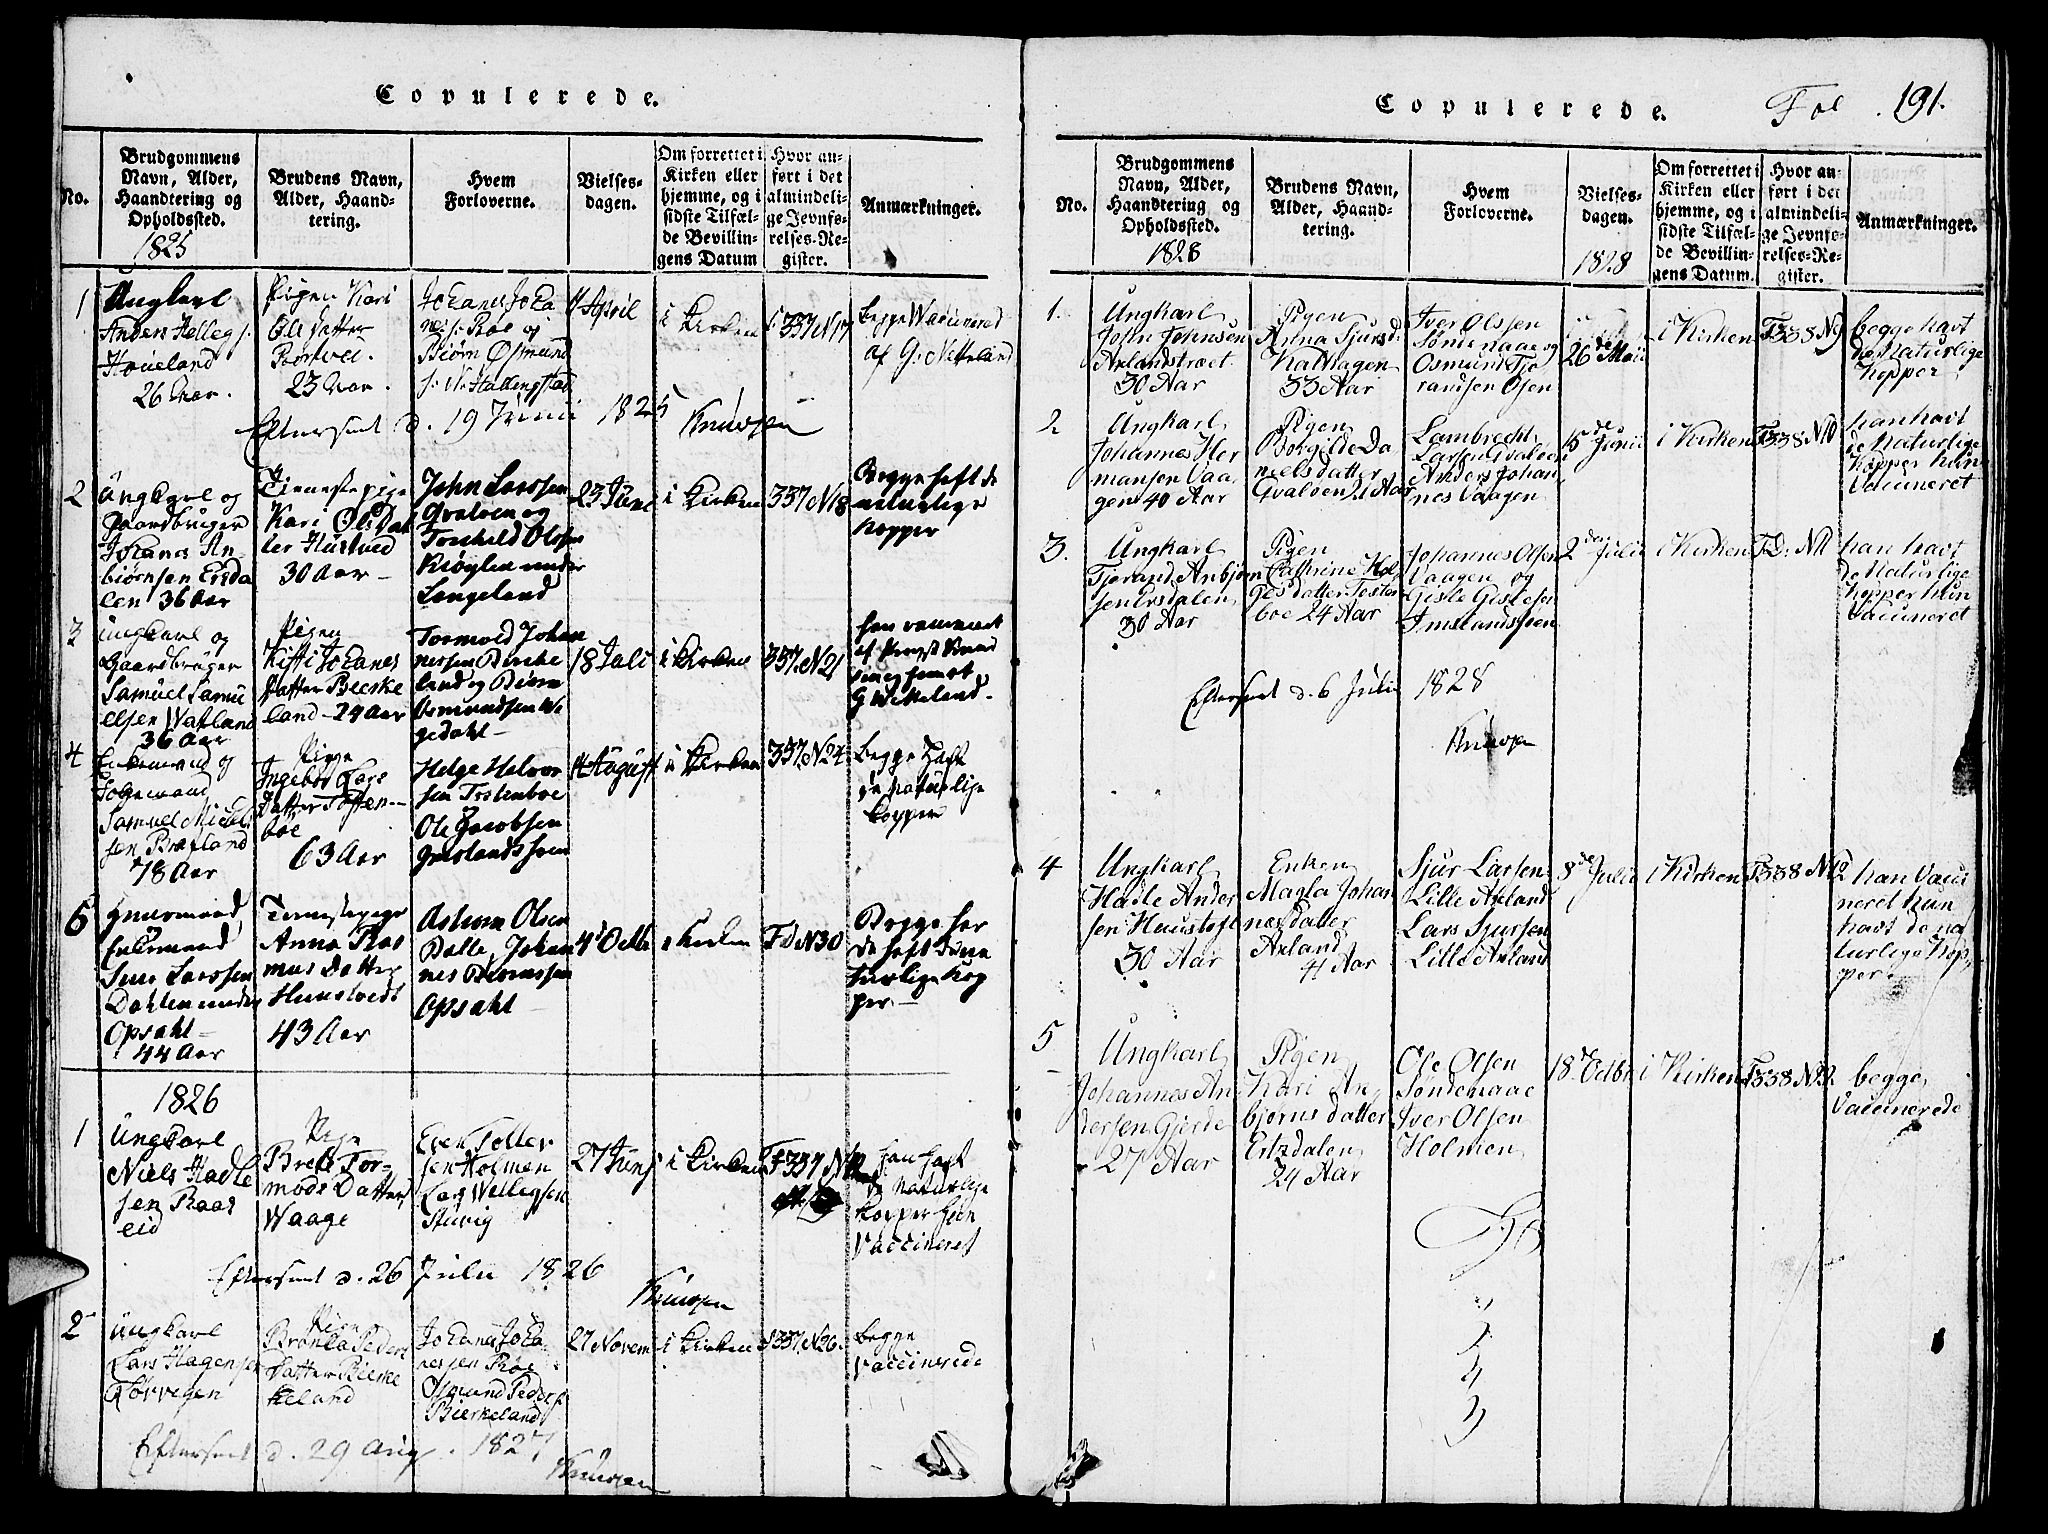 Copulerede.
No.
Brudgommens Navn, Alder, Haandtering og Opholdssted.
Brudens Navn, Alder, Haandtering.
Hvem Forloverne.
Vielsesdagen.
Om forrettet i Kirken eller hjemme, og i sidste Tilfælde Bevillingens Datum
Hvor anført i det almindelige Jevnførelses-Register.
Anmærkninger.
1825
1
Ungkarl
Anders Helleg s.
Houeland
26 Aar.
Pigen Kari
Ole Datter
23 Aar.
Johanes Joha
nes s. Röe og
Biørn Osmund
4 April
i Kirken
F 337 N 17
begge Vaccinered
af G. Netteland
Efterseet d. 19 Junii 1825
Knudsen
2
Ungkarl og
Gaardbruger
Johanes An-
biørnsen Ersda
len 36 Aar
Tienestepige
Kari Ols Dat
ter Hustved
30 Aar
John Larssen
Qvaloen og
Torchild Olssen
Krøglen under
Langeland
23 Juni
i Kirken
337 N 18
Begge haft de
naturlige
Kopper
3
Ungkarl og
Gaardbruger
Samuel Samu
elsen Watland
36 Aar
Pigen
Johanes
Datter Bierke
land 24 Aar
Tormod Johan
nessen Birke
land og Biørn
Osmundsen
18 Juli
i Kirken
337 N 21
4
Enkemand og
Samuel Michel
sen Bratland
78 Aar
Pige
Ingebor Lars
Datter Tosten-
boe
63 Aar
Helge Helvor
sen Tostenboe
Ole Jacobsen
4 August
i Kirken
337 N 24
begge haft
de naturlige
kopper
5
Enkemand
Siur Larssen
Dahlen under
Opsahl
44 Aar
Tienestepige
Anna Ras
mus Datter
Hunstvedt
43 Aar
Olsen
Dalle, Johan
nes
Opsahl
4 Octb
i Kirken
F d N 30
Begge har
de haft de na
turlige Kop
per
1826
1
Ungkarl
Niels Hadle
sen Raas
eid
Pige
Brete Tor-
mods Datter
Waage
Even Toller
sen Holmen
Lars
Stuvig
27 Junj
i Kirken
F 337 N
han haft
de naturlige
kopper hun
Vaccineret
Eftersent d. 26 Julii 1826
Knudsen
2
Ungkarl
Lars Hagensen
Rørvegen
Pigen
Peders
Datter Bierke
keland
Johanes Joha
nessen Röe
Osmund Peders.
Bierkeland
27 Novem
i Kirken
F 337 N 26.
begge
vaccinerede
Eftersent d. 29 Aug. 1827
Knudsen
Copulerede.
Fol. 191.
No.
Brudgommens Navn, Alder, Haandtering og Opholdssted.
Brudens Navn, Alder, Haandtering.
Hvem Forloverne.
Vielsesdagen.
Om forrettet i Kirken eller hjemme, og i sidste Tilfælde Bevillingens Datum.
Hvor anført i det almindelige Jevnførelses-Register.
Anmærkninger.
1828
1828
1.
Ungkarl
John Johnsen
Axlandstræet
30 Aar
Pigen
Anna Sjursd.
Kalhagen
33 Aar
Iver Olssen
Søndenaae og
Osmund Tjo
randsen Osen
26 de Maii
i Kirken
F 338 N 9
begge havt
de Naturlige
Kopper
2
Ungkarl
Johannes Her
mansen Vaa
gen 40 Aar
Pigen
Borgilde Da
nielsdatter
Qvaloen
Lambrecht
Larsen Qvaloen
Anders Johan
nes Vaagen
15 de Junii
i Kirken
F 338 N 10
han havt
de Naturlige
Kopper hun
Vaccineret
3.
Ungkarl
Tjerand Anbjørn
sen Ersdalen
30 Aar
Pigen
Cathrine Hel
gesdatter Tosten
boe 24 Aar
Johannes Olsen
Vaagen og
Gisle Gislesen
2 den Julii
i Kirken
F. D. N 11
han havt
de Naturlige
kopper hun
Vaccineret
Eftersent d. 6 Julii 1828
Knudsen
4
Ungkarl
Hadle Ander
sen Haustoft
30 Aar
Enken
Magla Johan
nesdatter
Axland
41 Aar
Sjur Larsen
Lille Axland
Lars Sjursen
Lille Axland
8 de Julii
i Kirken
F 338 N 12
han Vacci
neret hun
havt de na
turlige Kop
per
5
Ungkarl
Johannes An
dersen Gjerde
27 Aar
Pigen
Kari An
bjørns datter
Ersdalen
24 Aar
Ole Olsen
Søndenaae
Iver Olsen
Holmen
18 de Octbr
i Kirken
F 338 N
begge
Vaccinerede